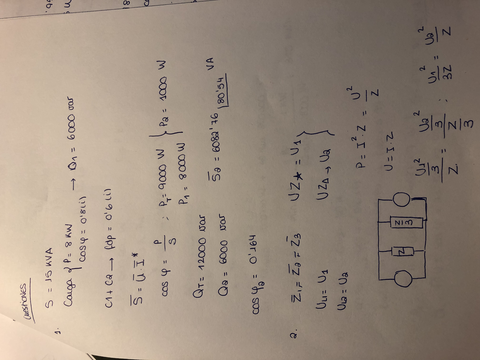 1. S = 15 kVA
Carga { P = 8 kW
cosφ = 0'8 (i) → Q1 = 6000 var
C1 + C2 → fdp = 0'6 (i)
S̄ = Ū I*
cos φ = P/S ; PT = 9000 W
P1 = 8000 W } P2 = 1000 W
QT = 12000 var
Q2 = 6000 var
S̄2 = 6082'76 |80'54 VA
cos φ2 = 0'164
2. Z̄1 = Z̄2 = Z̄3
UZ⋆ = U1
UZΔ → U2 }
UL1 = U1
UL2 = U2
P = I² Z = U²/Z
U = I Z
Z
Z/3
U1²/3 / Z = U2²/3 / Z/3 ; U1²/3Z = U2²/Z